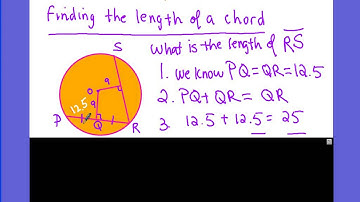 Finding the length of a chord
What is the length of RS
1. we know PQ=QR=12.5
2. PQ+QR= QR
3. 12.5+12.5= 25
S
9
O
9
12.5
P
Q
R